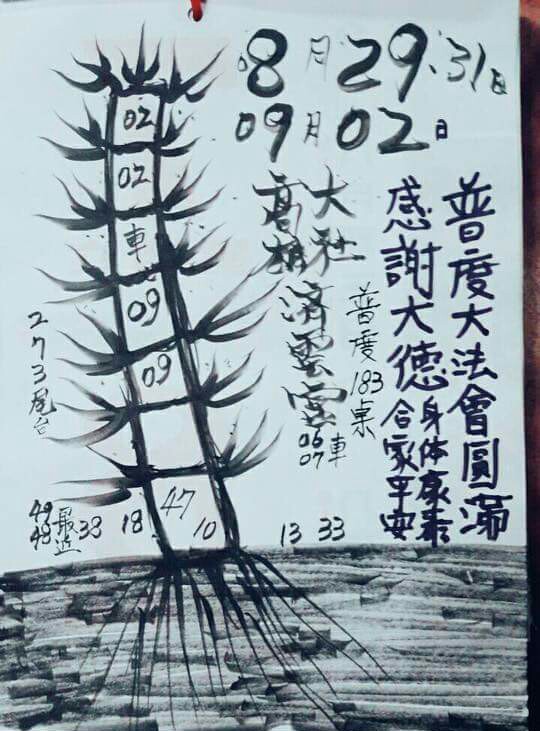 08月29.31日
09月02日
普度大法會圓滿
感謝大德身体康泰
合家平安
大社
普度183桌
濟雲宮
車
06
07
02
02
車
09
09
47
10
273尾台
49
48
最近
38
18
13
33